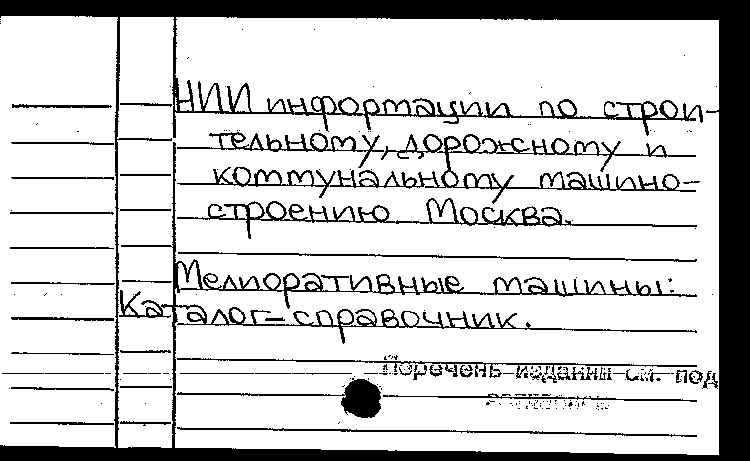 НИИ информации по строи-
тельному, дорожному и
коммунальному машино-
строению Москва.
Мелиоративные машины:
Каталог-справочник.
Перечень издания см. под